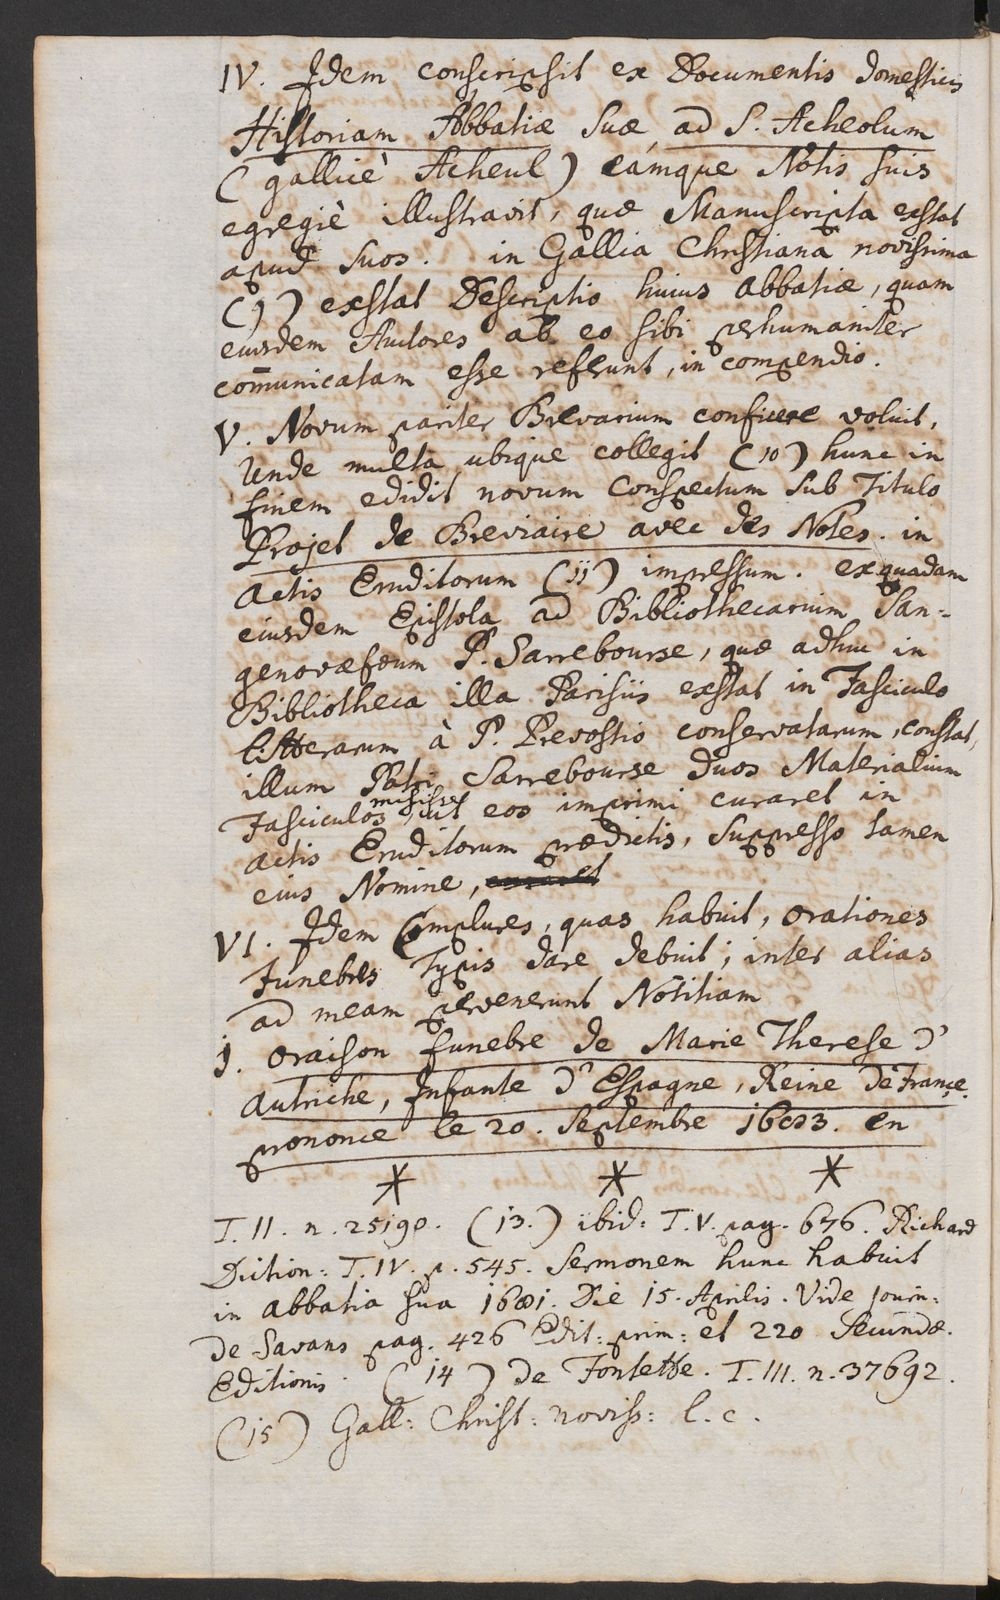 IV. Idem conscripsit ex Documentis domesticis
Historiam Abbatiæ suæ ad S. Acheolum
(gallicè Acheul) eámque Notis suis
egregiè illustravit, quæ Manuscripta exstat
apud suos. in Gallia Christiana novissima
(9) exstat Descriptio huius abbatiæ, quam
eiusdem Auctores ab eo sibi perhumaniter
com̄unicatam esse referunt, in compendio.
V. Novum pariter Brevarium conficere voluit,
Unde multa ubique collegit (10) hunc in
finem edidit novum Conspectum sub Titulo
Projet de Breviaire avec des Notes. in
actis Eruditorum (11) impressum. ex quadam
eiusdem Epistola ad Bibliothecarium San=
genovæfæum P. Sarrebourse, quæ adhuc in
Bibliotheca illa Parisiis exstat in Fasciculo
Litterarum à P. Prevostio conservatarum, constat,
illum Patri Sarrebourse duos Materialium
Fasciculos misisse, ut eos imprimi curaret in
actis Eruditorum prædictis, suppresso tamen
eius Nomine, curaret
VI. Idem Complures, quas habuit, orationes
Funebres Typis dare debuit; inter alias
ad meam pervenerunt Notitiam
1. Oraison funebre de Marie Therese d'
Autriche, Infante d'Espagne, Reine de France.
prononce le 20. Septembre 1683. en
* * *
T. II. n. 25190. (13.) ibid: T. V. pag. 676. Richard
Diction: T. IV. p. 545. Sermonem hunc habuit
in abbatia sua 1681. Die 15. Aprilis. Vide Journ:
de Savans pag. 426 Edit: prim: et 220 Secundæ.
Editionis. (14) de Fontette. T. III. n. 37692.
(15) Gall: Christ: noviss: l. c.